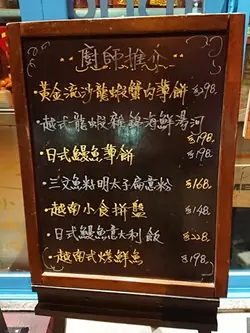 廚師推介
黃金流沙龍蝦蟹肉薯餅 $98.
越式龍蝦雞湯海鮮湯河 $198.
日式鰻魚薯餅 $98.
三文魚籽明太子扁意粉 $168.
越南小食拼盤 $148.
日式鰻魚意大利飯 $228.
越南式煤鮮魚 $198.